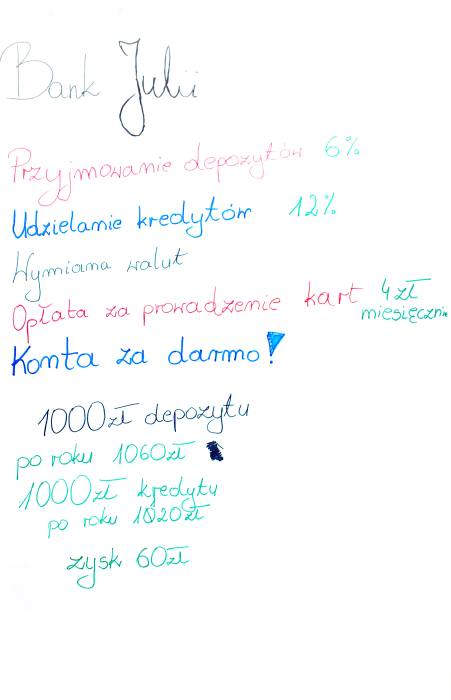 Bank Julii
Przyjmowanie depozytów 6%
Udzielanie kredytów 12%
Wymiana walut
Opłata za prowadzenie kart 4zł miesięcznie
Konta za darmo!
1000zł depozytu
po roku 1060zł
1000zł kredytu
po roku 1020zł
zysk 60zł